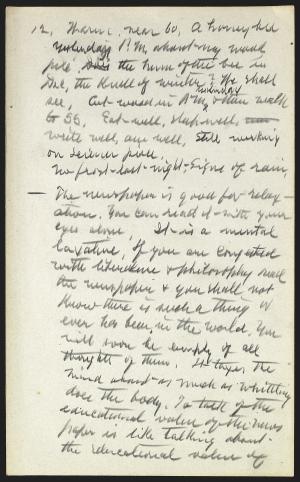 12, Warm, near 60, A honey bee
yesterday P.M. about my wood
pile. Is the hum of the bee in
Dec, the knell of winter? We shall
see, Cut wood in P.M. & then walk
to SS. Eat well, sleep well,
write well, am well, still working
on Science piece.
no frost last night - signs of rain,
— The newspaper is good for relax-
ation. You can read it with your
eyes alone. It is a mental
laxative, If you are congested
with literature & philosophy read
the newspaper & you shall not
know there is such a thing or
ever has been, in the world. You
will soon be empty of all
thought of them. It taxes the
mind about as much as whittling
does the body. To talk of the
educational value of the news
paper is like talking about
the educational value of